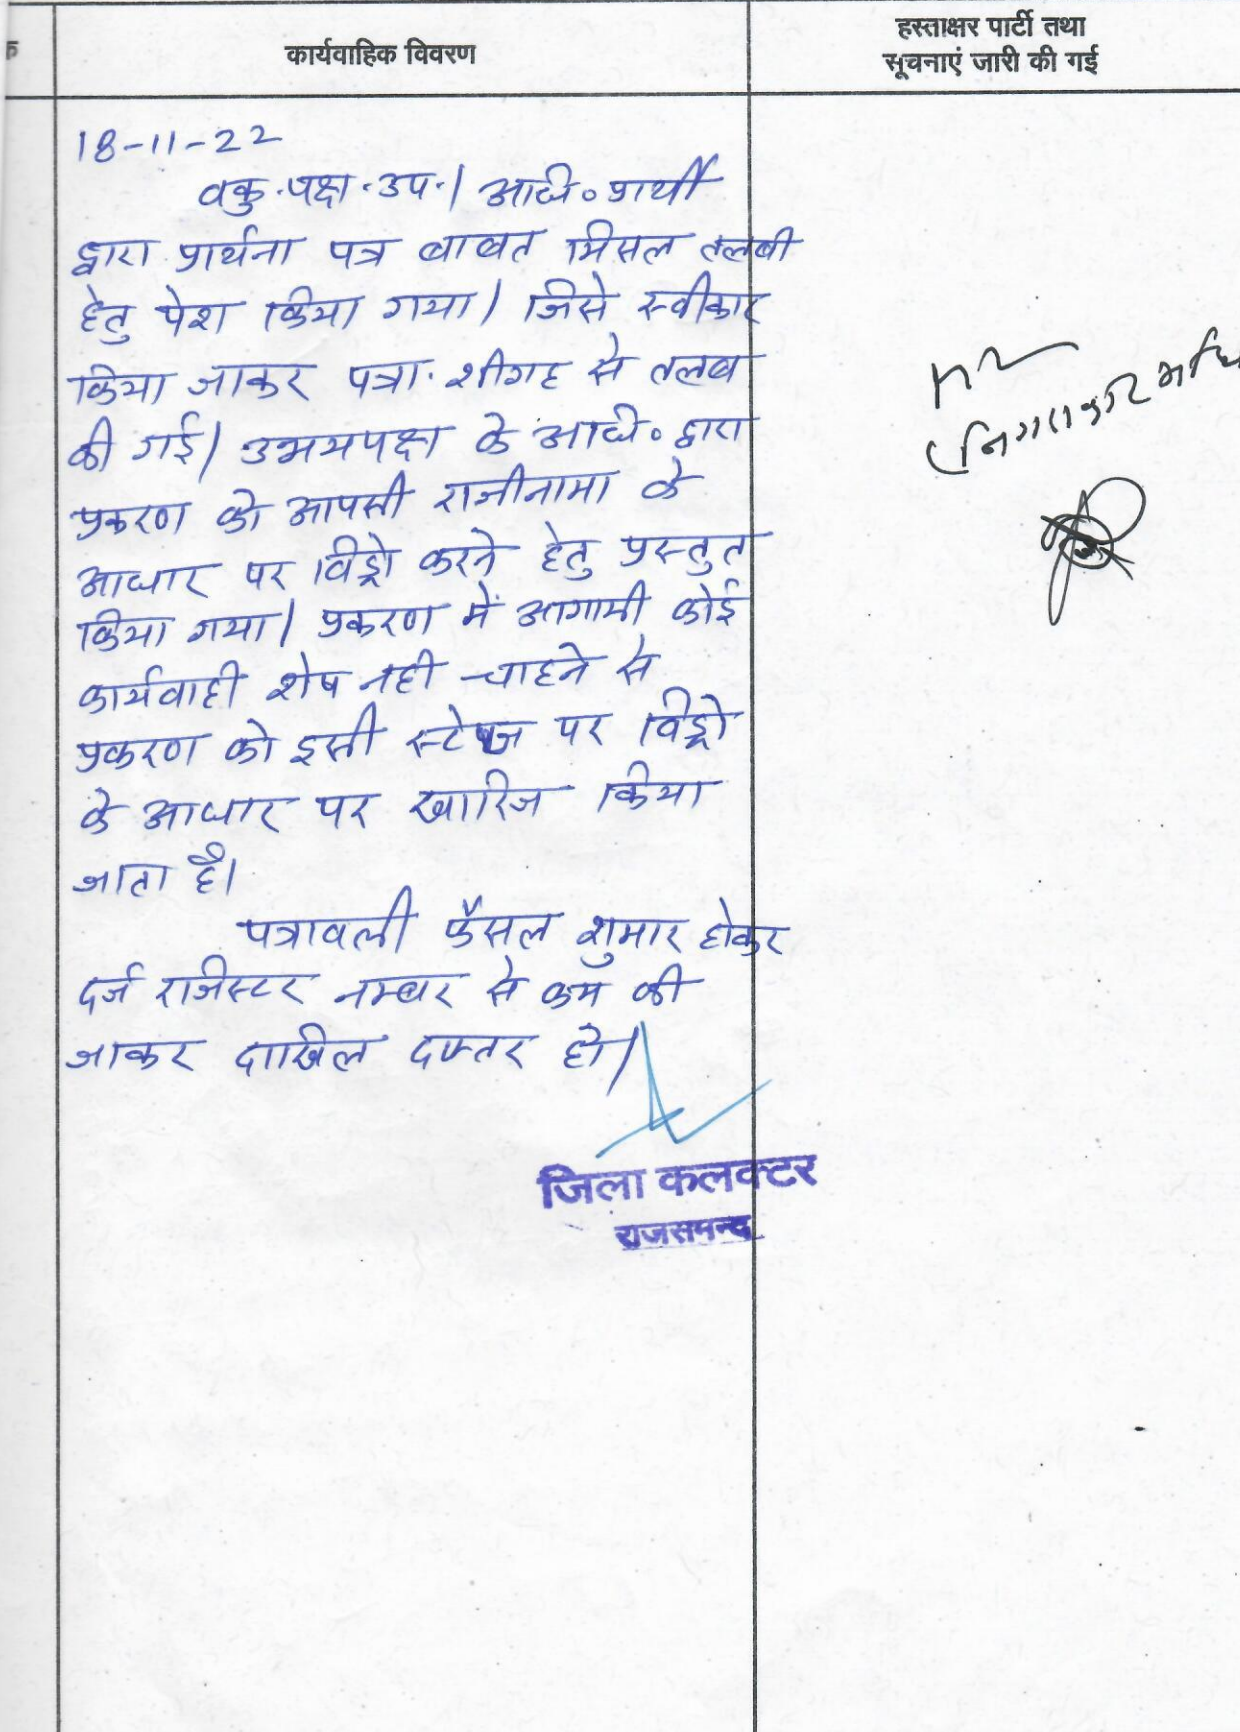 कार्यवाहिक विवरण
हस्ताक्षर पार्टी तथा
सूचनाएं जारी की गई
18-11-22
वकु.पक्ष.उप.। अधि० प्रार्थी
द्वारा प्रार्थना पत्र बाबत मिसल तलबी
हेतु पेश किया गया। जिसे स्वीकार
किया जाकर पत्रा. शीगह से तलब
की गई। उभयपक्ष के अधि० द्वारा
प्रकरण को आपसी राजीनामा के
आधार पर विड्रो करने हेतु प्रस्तुत
किया गया। प्रकरण में आगामी कोई
कार्यवाही शेष नही चाहने से
प्रकरण को इसी स्टेज पर विड्रो
के आधार पर खारिज किया
जाता है।
पत्रावली फैसल शुमार होकर
दर्ज राजिस्टर नम्बर से कम की
जाकर दाखिल दफ्तर हो।
जिला कलक्टर
राजसमन्द